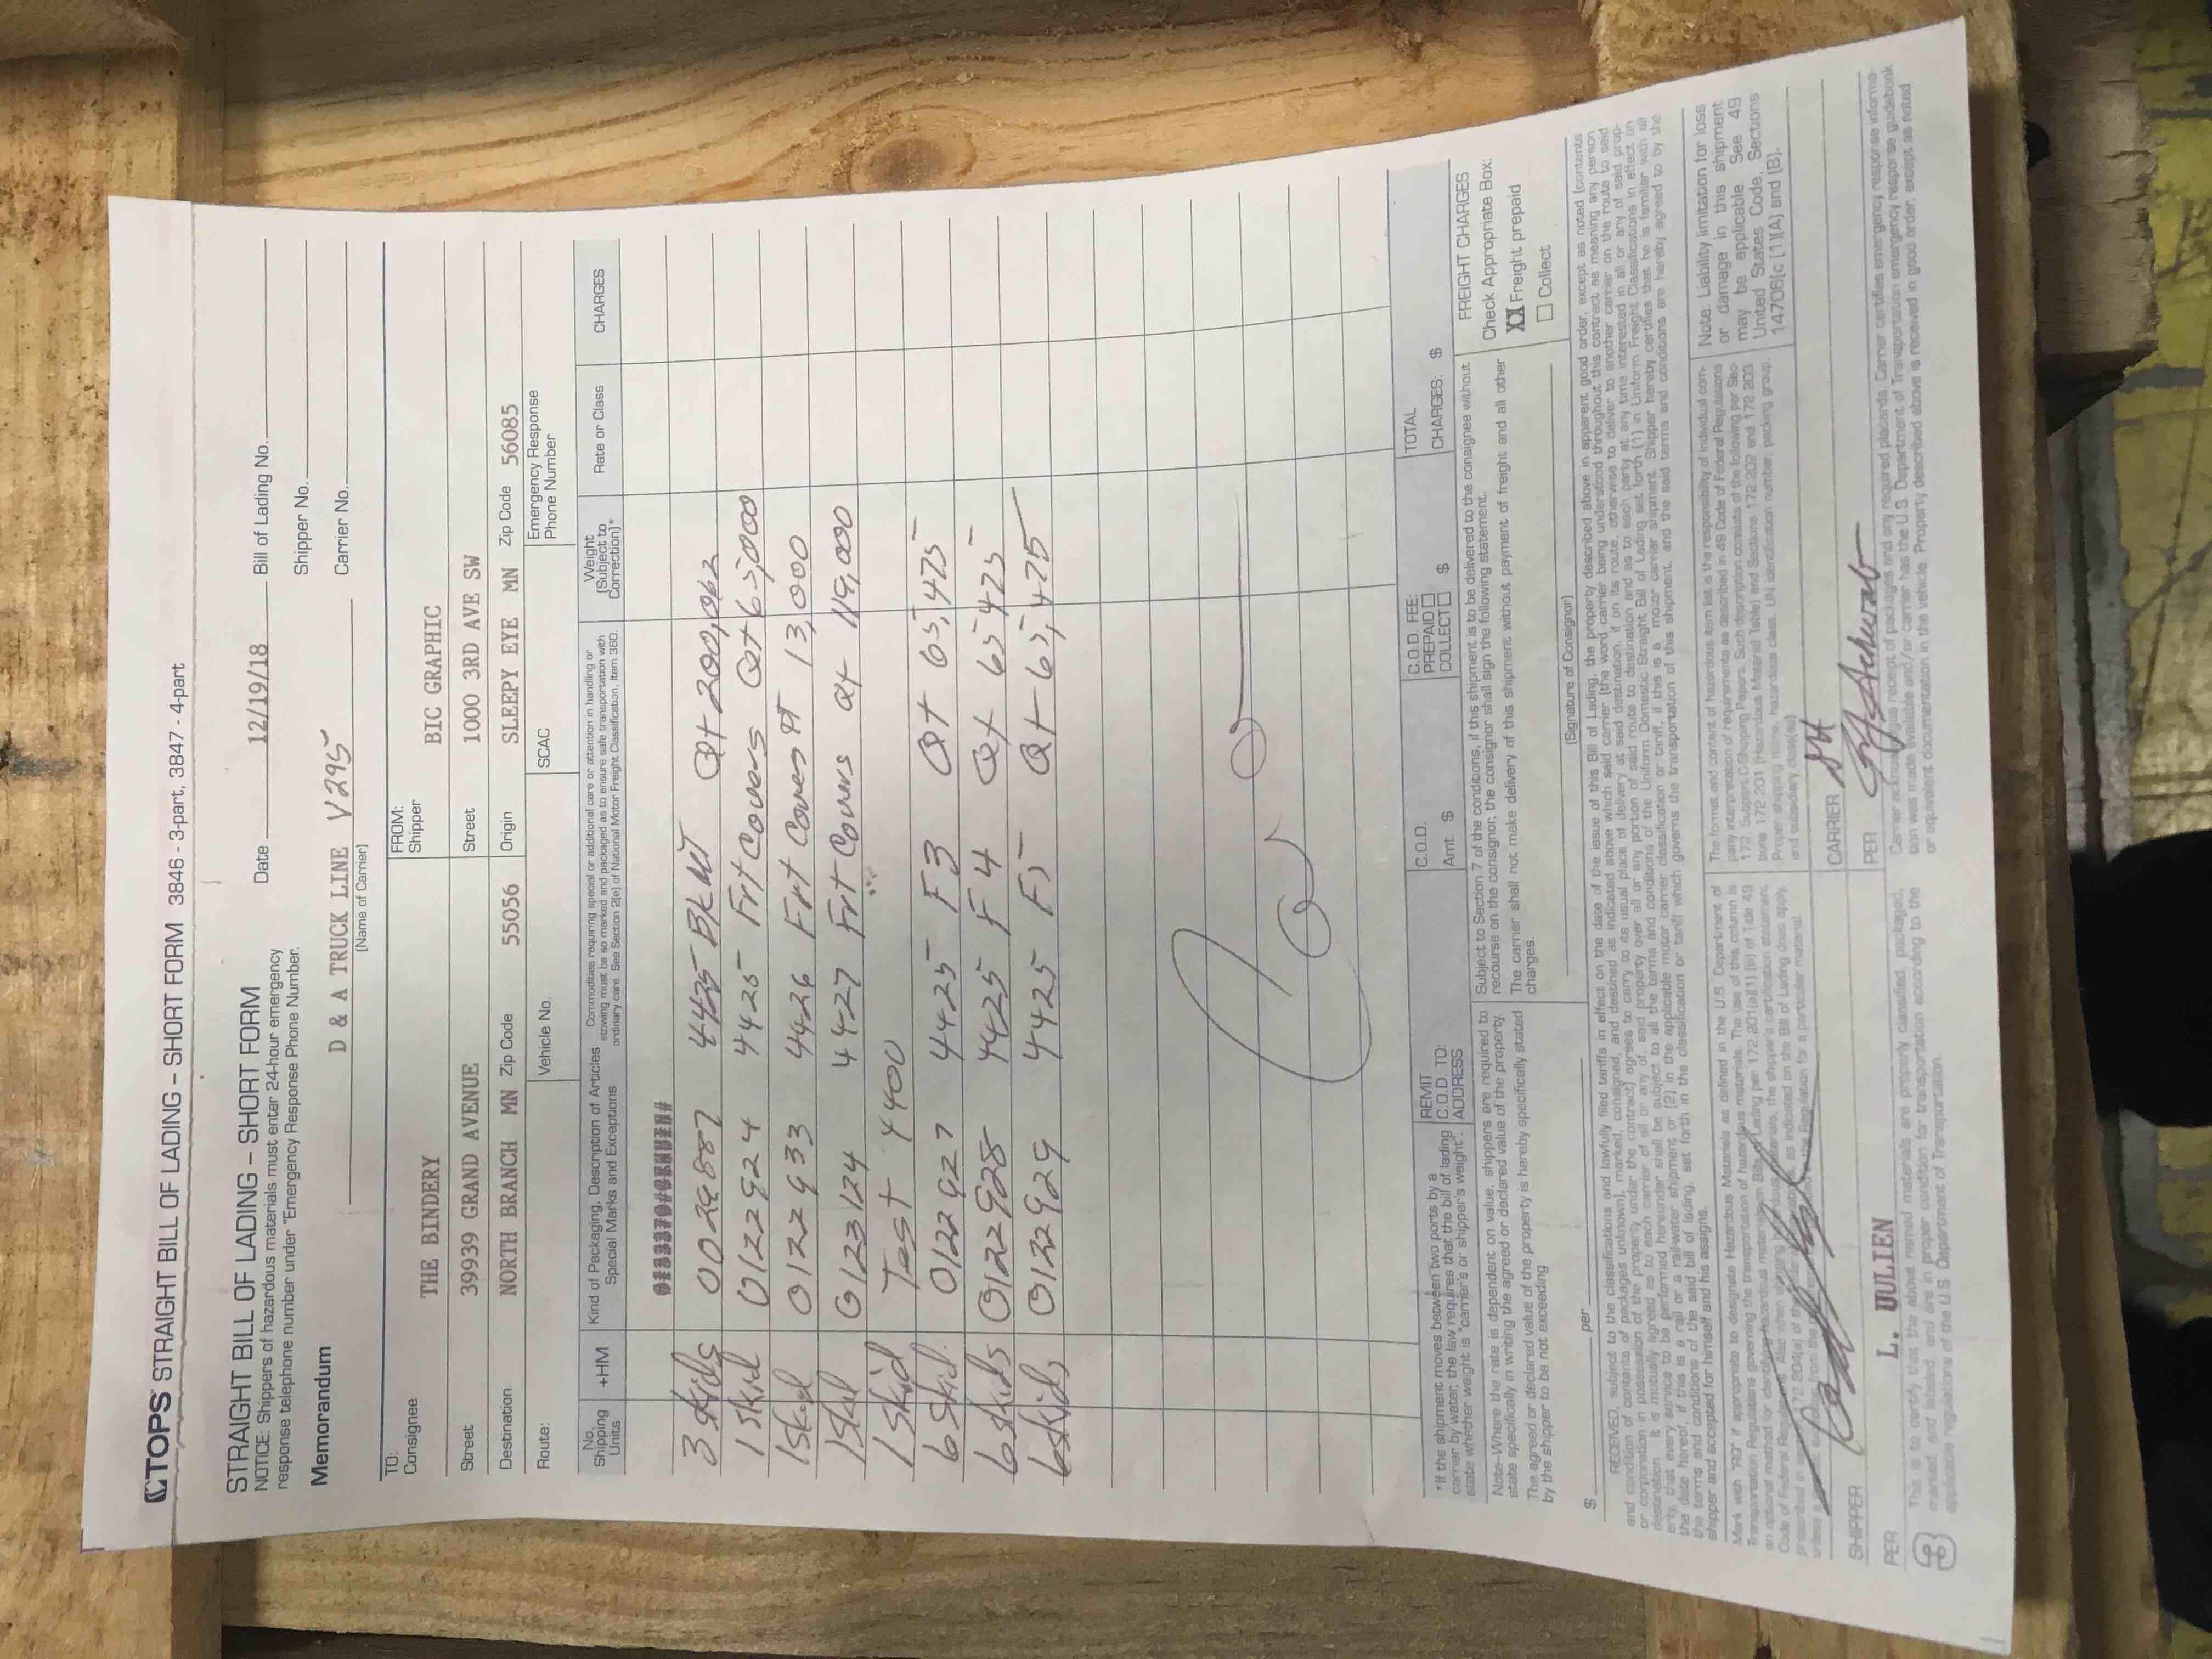 TOPS STRAIGHT BILL OF LADING – SHORT FORM 3846 - 3-part, 3847 - 4-part
STRAIGHT BILL OF LADING – SHORT FORM
NOTICE: Shippers of hazardous materials must enter 24-hour emergency
response telephone number under "Emergency Response Phone Number.
Date 12/19/18
Bill of Lading No.
Shipper No.
Memorandum
D & A TRUCK LINE V295
Carrier No.
(Name of Carrier)
TO:
Consignee THE BINDERY
FROM:
Shipper BIC GRAPHIC
Street 39939 GRAND AVENUE
Street 1000 3RD AVE SW
Destination NORTH BRANCH MN Zip Code 55056
Origin SLEEPY EYE MN Zip Code 56085
Route:
Vehicle No.
SCAC
Emergency Response
Phone Number
No. Shipping Units
+HM
Kind of Packaging, Description of Articles
Special Marks and Exceptions
Commodities requiring special or additional care or attention in handling or
stowing must be so marked and packaged as to ensure safe transportation with
ordinary care. See Section 2(e) of National Motor Freight Classification, Item 360.
Weight
(Subject to
Correction)*
Rate or Class
CHARGES
3 skids 0029887 4425 Bk MT Qt 200,062
1 skid 0122924 4425 Frt Covers Qt 65,000
1 skid 0122933 4426 Frt Covers 13,000
1 skid 0123124 4427 Frt Covers Qt 119,000
1 skid Test 4400
6 skid 0122927 4425 F3 Qt 65,425
6 skids 0122928 4425 F4 Qt 65,425
6 skids 0122929 4425 F5 Qt 65,425
REMIT
C.O.D. TO:
ADDRESS
C.O.D.
Amt. $
C.O.D. FEE:
PREPAID
COLLECT $
TOTAL
CHARGES: $
*If the shipment moves between two ports by a
carrier by water, the law requires that the bill of lading
state whether weight is "carrier's or shipper's weight".
Note–Where the rate is dependent on value, shippers are required to
state specifically in writing the agreed or declared value of the property.
The agreed or declared value of the property is hereby specifically stated
by the shipper to be not exceeding
$ per
Subject to Section 7 of the conditions, if this shipment is to be delivered to the consignee without
recourse on the consignor, the consignor shall sign the following statement.
The carrier shall not make delivery of this shipment without payment of freight and all other
charges.
(Signature of Consignor)
FREIGHT CHARGES
Check Appropriate Box:
XX Freight prepaid
Collect
RECEIVED, subject to the classifications and lawfully filed tariffs in effect on the date of the issue of this Bill of Lading, the property described above in apparent good order, except as noted (contents
and condition of contents of packages unknown), marked, consigned, and destined as indicated above which said carrier (the word carrier being understood throughout this contract as meaning any person
or corporation in possession of the property under the contract) agrees to carry to its usual place of delivery at said destination, if on its route, otherwise to deliver to another carrier on the route to said
destination. It is mutually agreed as to each carrier of all or any of, said property over all or any portion of said route to destination and as to each party at any time interested in all or any of said prop-
erty, that every service to be performed hereunder shall be subject to all the terms and conditions of the Uniform Domestic Straight Bill of Lading set forth (1) in Uniform Freight Classifications in effect on
the date hereof, if this is a rail or a rail-water shipment, or (2) in the applicable motor carrier classification or tariff, if this is a motor carrier shipment. Shipper hereby certifies that he is familiar with all
the terms and conditions of the said bill of lading, set forth in the classification or tariff which governs the transportation of this shipment, and the said terms and conditions are hereby agreed to by the
shipper and accepted for himself and his assigns.
Mark with "RQ" if appropriate to designate Hazardous Materials as defined in the U.S. Department of
Transportation Regulations governing the transportation of hazardous materials. The use of this column is
The format and content of hazardous item list is the responsibility of individual com-
pany interpretation of requirements as described in 49 Code of Federal Regulations
172 Subpart C-Shipping Papers. Such description consists of the following per Sec-
tions 172.201 (Hazardous Material Table) and Sections 172.202 and 172.203:
Proper shipping name, hazardous class, UN identification number, packing group,
and subsidiary class(es)
Note. Liability limitation for loss
or damage in this shipment
may be applicable. See 49
United States Code, Sections
14706(c)(1)(A) and (B).
SHIPPER
CARRIER
PER L. UULIEN
PER
This is to certify that the above named materials are properly classified, packaged,
marked, and labeled, and are in proper condition for transportation according to the
applicable regulations of the U.S. Department of Transportation
Carrier acknowledges receipt of packages and any required placards. Carrier certifies emergency response informa-
tion was made available and/or carrier has the U.S. Department of Transportation emergency response guidebook
or equivalent documentation in the vehicle. Property described above is received in good order, except as noted